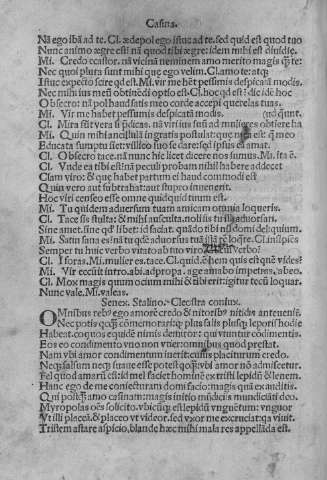 Casina.
Nã ego ibã ad te. Cl. ædepol ego istuc ad te. sed quid est quod tuo
Nunc animo ægre est? nã quod tibi ægre: idem mihi est diuidię.
Mi. Credo ecastor. nã vicinã neminem amo merito magis q̃ te:
Nec quoi plura sunt mihi quę ego velim. Cl. amo te: atq;
Istuc expecto scire qd est. Mi. vir me hẽt pessimis despicatã modis.
Obsecro: nã pol haud satis meo corde accepi querelas tuas.
Mi. Vir me habet pessumis despicatã modis.
Mi. Quin mihi ancillulã ingratis postulat: quę
Educata sumptu siet: villico suo se dare: sed ipsus eã amat.
Cl. Obsecro tace. nã nunc hic licet dicere nos sumus. Mi. ita ẽ.
Cl. Vnde ea tibi est: nã peculi probam nihil habere addecet
Clam viro: & quę habet partum ei haud commodi est
Quin vero aut subtrahat: aut stupro inuenerit.
Hoc viri censeo esse omne quidquid tuum est.
Mi. Tu quidem aduersum tuam amicam omnia loqueris.
Cl. Tace sis stulta: & mihi ausculta. noli sis tu illi aduorsari.
Sine amet. sine qd libet: id faciat. quãdo tibi nil domi deliquium.
Semper tu huic verbo vitato ab tuo viro. Mi. cui verbo?
Cl. I foras. Mi. mulier es. tace. Cl. quid ẽ? hem quis est quẽ vides?
Cl. Mox magis quom ocium mihi & tibi erit: igitur tecũ loquar.
Nunc vale. Mi. valeas.
Senex. Stalino. Cleostra coniux.
OMnibus reb⁹ ego amorẽ credo & nitorib⁹ nitidis anteuenire.
Habeat. coquos equidẽ nimis demiror: qui vtuntur cõdimentis.
Eos eo condimento vno non vtier: omnibus quod prestat.
Nam vbi amor condimentum inerit: cuiuis placiturum credo.
Neq; salsum neq; suaue esse potest qcq̃: vbi amor nõ admiscetur.
Fel quod amarũ ẽ: id mel faciet hominẽ ex tristi lepidũ & lenem.
Hanc ego de me coniecturam domi facio: magis quã ex auditis.
Qui postq̃ amo casinam: magis initio mũdiciis mundiciãti deo.
Myropolas oẽs solicito. vbicũq; est lepidũ vnguẽtum: vnguor
Vt illi placeã. & placeo vt videor. sed vxor me excruciat: q̃a viuit.
Tristem astare aspicio. blande hęc mihi mala res appellãda est.